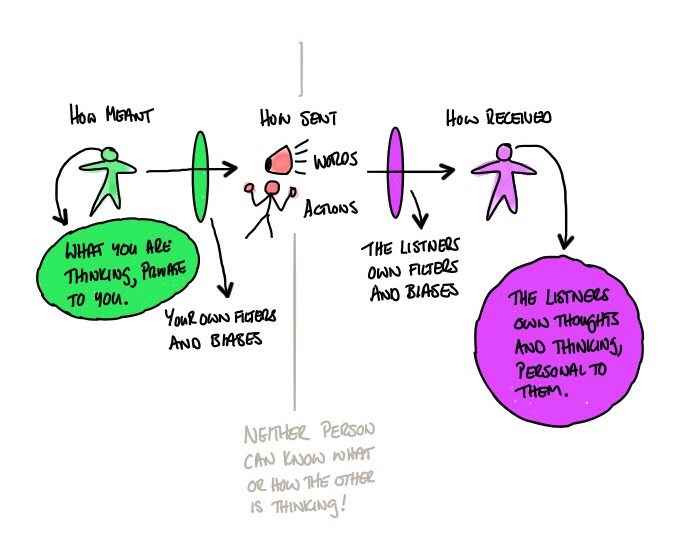 HOW MEANT
HOW SENT
HOW RECEIVED
WORDS
ACTIONS
WHAT YOU ARE
THINKING, PRIVATE
TO YOU.
YOUR OWN FILTERS
AND BIASES
THE LISTNERS
OWN FILTERS
AND BIASES
THE LISTNERS
OWN THOUGHTS
AND THINKING,
PERSONAL TO
THEM.
NEITHER PERSON
CAN KNOW WHAT
OR HOW THE OTHER
IS THINKING!